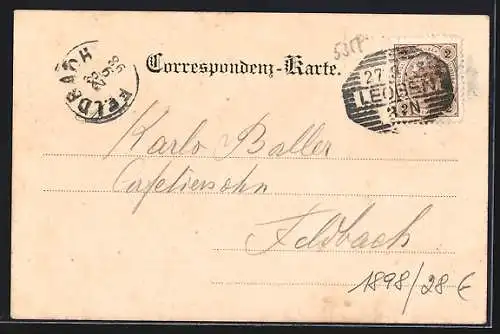 FELDBACH
Correspondenz-Karte.
27
LEOBEN
2
Karlo Baller
Cafétierssohn
Feldbach
1898/28 €